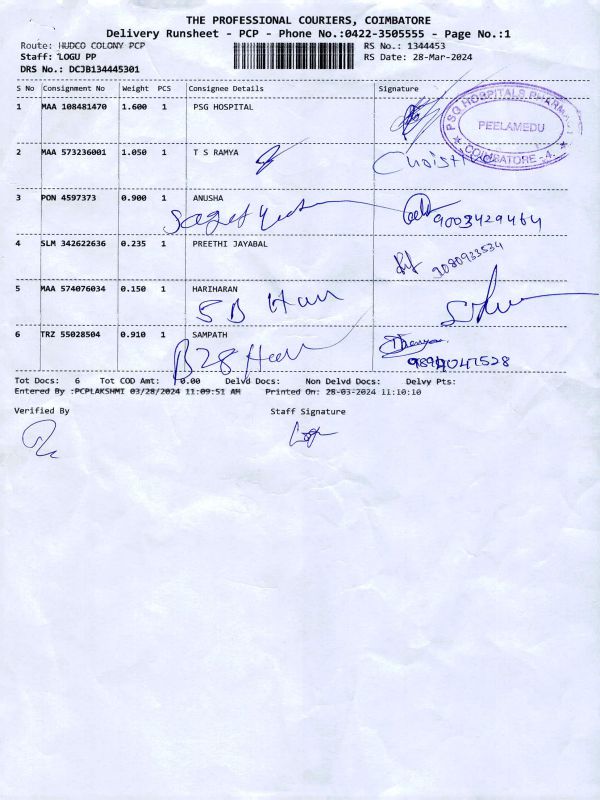 THE PROFESSIONAL COURIERS, COIMBATORE
Delivery Runsheet - PCP - Phone No.:0422-3505555 - Page No.:1
Route: HUDCO COLONY PCP
Staff: LOGU PP
DRS No.: DCJB134445301
RS No.: 1344453
RS Date: 28-Mar-2024
S No Consignment No Weight PCS Consignee Details Signature
1 MAA 108481470 1.600 1 PSG HOSPITAL
PSG HOSPITALS PHARMACY
PEELAMEDU
COIMBATORE - 4.
2 MAA 573236001 1.050 1 T S RAMYA
3 PON 4597373 0.900 1 ANUSHA
9003429464
4 SLM 342622636 0.235 1 PREETHI JAYABAL
9080933534
5 MAA 574076034 0.150 1 HARIHARAN
6 TRZ 55028504 0.910 1 SAMPATH
Tot Docs: 6 Tot COD Amt: 0.00 Delvd Docs: Non Delvd Docs: Delvy Pts:
Entered By :PCPLAKSHMI 03/28/2024 11:09:51 AM Printed On: 28-03-2024 11:10:10
Verified By Staff Signature